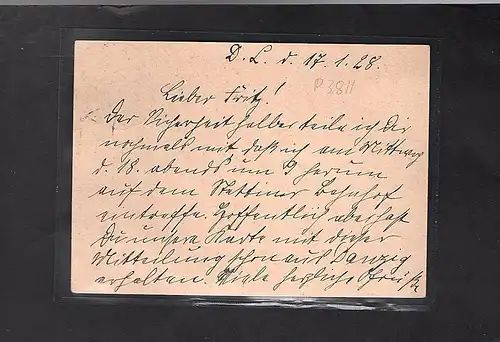 D. L. d. 17.1.28.
P 3811
Lieber Fritz!
Der Sicherheit halber teile ich Dir
nochmals mit daß ich am Mittwoch
d. 18. abends um 9 herum
auf dem Stettiner Bahnhof
eintreffe. Hoffentlich aber hast
Du unsere Karte mit dieser
Mitteilung schon aus Danzig
erhalten. Viele herzliche Grüße